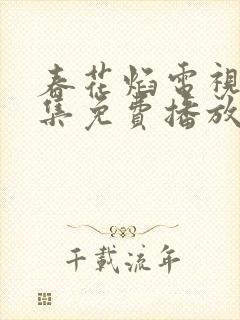 春花焰電視
集免費播放
千載流年